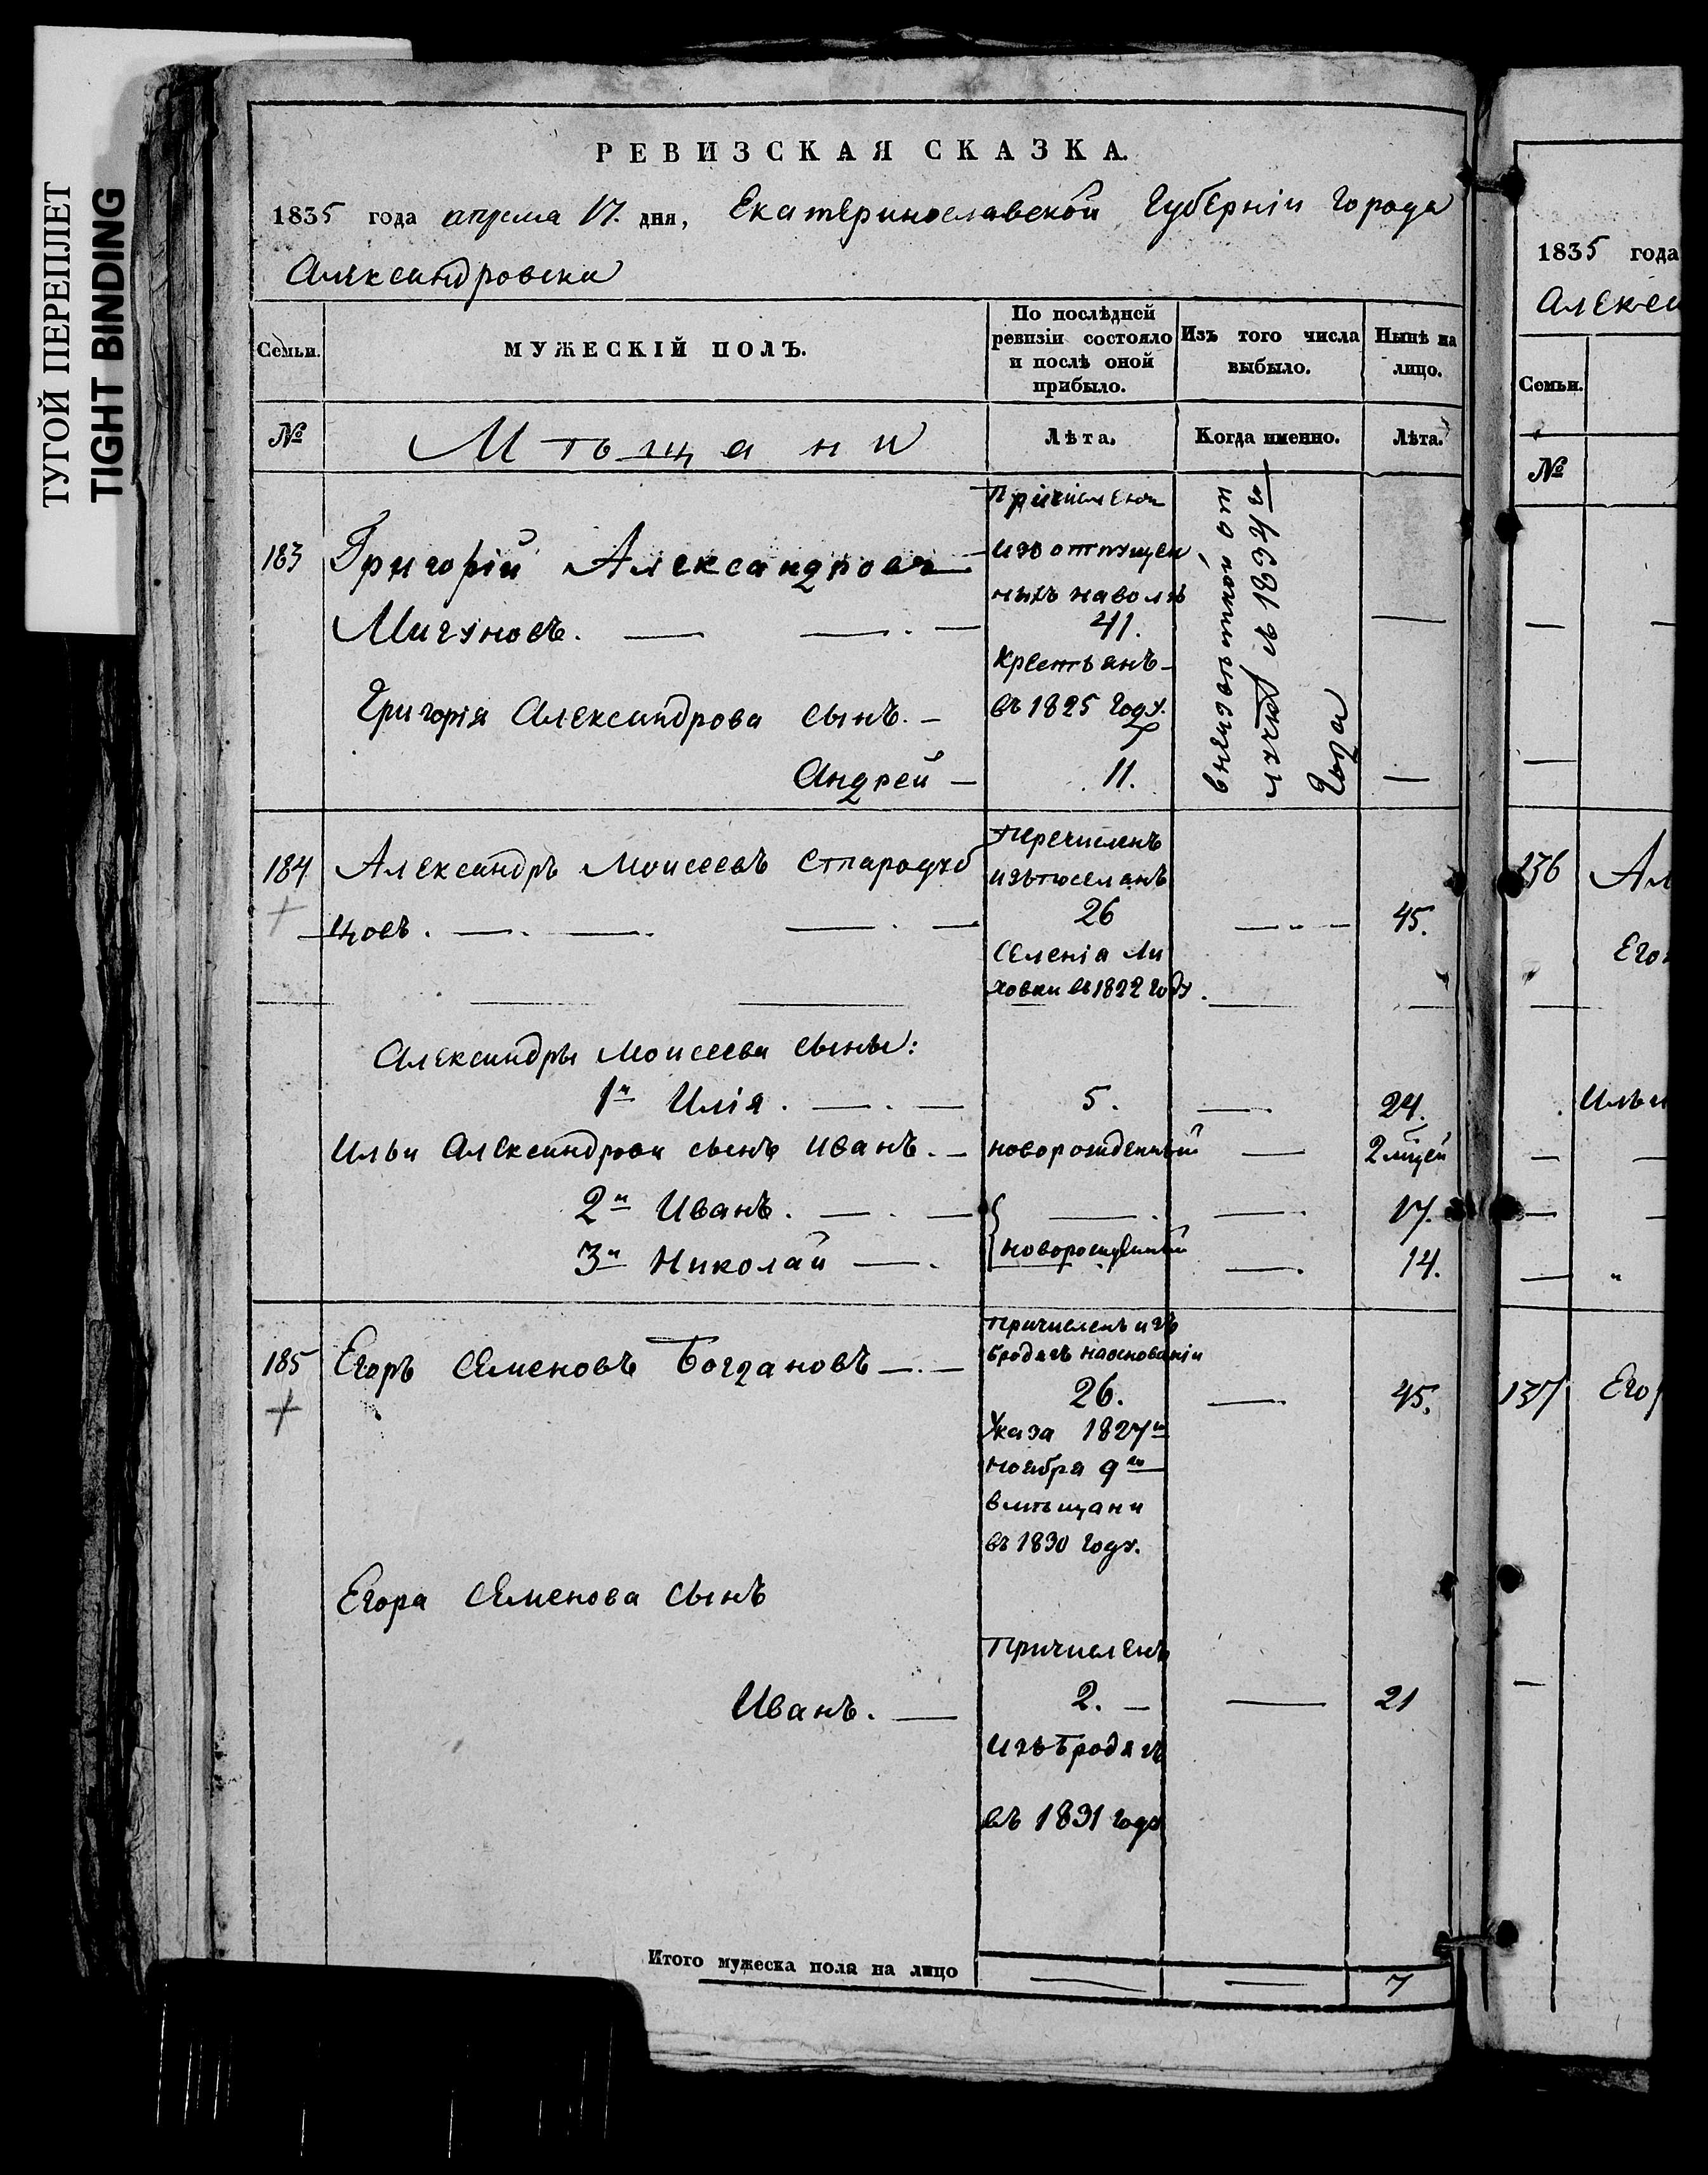 ТУГОЙ ПЕРЕПЛЕТ
TIGHT BINDING
РЕВИЗСКАЯ СКАЗКА.
1835 года апреля 17. дня, Екатеринославской Губерніи города
Александровска
Семьи.
МУЖЕСКІЙ ПОЛЪ.
По послѣдней ревизіи состояло и послѣ оной прибыло.
Изъ того числа выбыло.
Нынѣ на лицо.
№
Мѣщани
Лѣта.
Когда именно.
Лѣта.
183 Григорій Александровъ
Мигуновъ.
Григорія Александрова сынъ.
Андрей
Причислены
изъ отпущен
ныхъ наволю
41.
крестьянъ
въ 1825 году.
11.
1834
года
184 Александръ Моисеевъ Стародуб
цовъ.
Перечисленъ
изъ поселянъ
26
45.
селенія Ли
ховки въ 1822 году.
Александры Моисеева сыны:
1й Илія. 5. 24.
Ильи Александрова сынъ Иванъ. новорожденный 2 мцей
2й Иванъ. 17.
3й Николай новорожденный 14.
185 Егоръ Семеновъ Богдановъ
Причисленъ изъ
бродягъ наоснованіи
26. 45.
Указа 1827го
ноября 9го
вмѣщани
въ 1830 году.
Егора Семенова сынъ
Причисленъ
Иванъ. 2. 21
изъ бродягъ
въ 1831 году
Итого мужеска пола на лицо 7
1835 года
Алекса
Семьи.
№
136 Ал
Его
Ильи
137 Егор